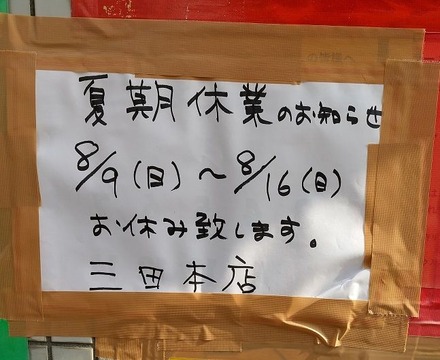 夏期休業のお知らせ
8/9(日)～8/16(日)
お休み致します。
三田本店